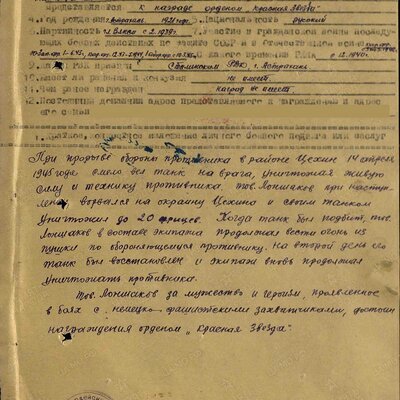 представляется к награде орденом „Красная Звезда"
4. Год рождения 1921 год 5. Национальность русский
6. Партийность с 2.1939г. 7. Участие в гражданской войне последующих боевых действиях по защите СССР и в Отечественной войне
с 12.1940г.
Сталинским РВК г. Астрахань
10. Имеет ли ранения и контузии не имеет.
11. Чем ранее награжден наград не имеет
12. Постоянный домашний адрес представляемого к награждению и адрес его семьи
1. Краткое, конкретное изложение личного боевого подвига или заслуг
При прорыве обороны противника в районе Цехин 14 апреля
1945 года смело вел танк на врага, уничтожая живую
силу и технику противника. тов. Лоншаков при наступ-
лении ворвался на окраину Цехина и своим танком
уничтожил до 20 фрицев. Когда танк был подбит, тов.
Лоншаков в составе экипажа продолжал вести огонь из
пушки по обороняющемуся противнику. На второй день его
танк был восстановлен и экипаж вновь продолжал
уничтожать противника.
Тов. Лоншаков за мужество и героизм, проявленное
в боях с немецко-фашистскими захватчиками, достоин
награждения орденом „Красная Звезда".